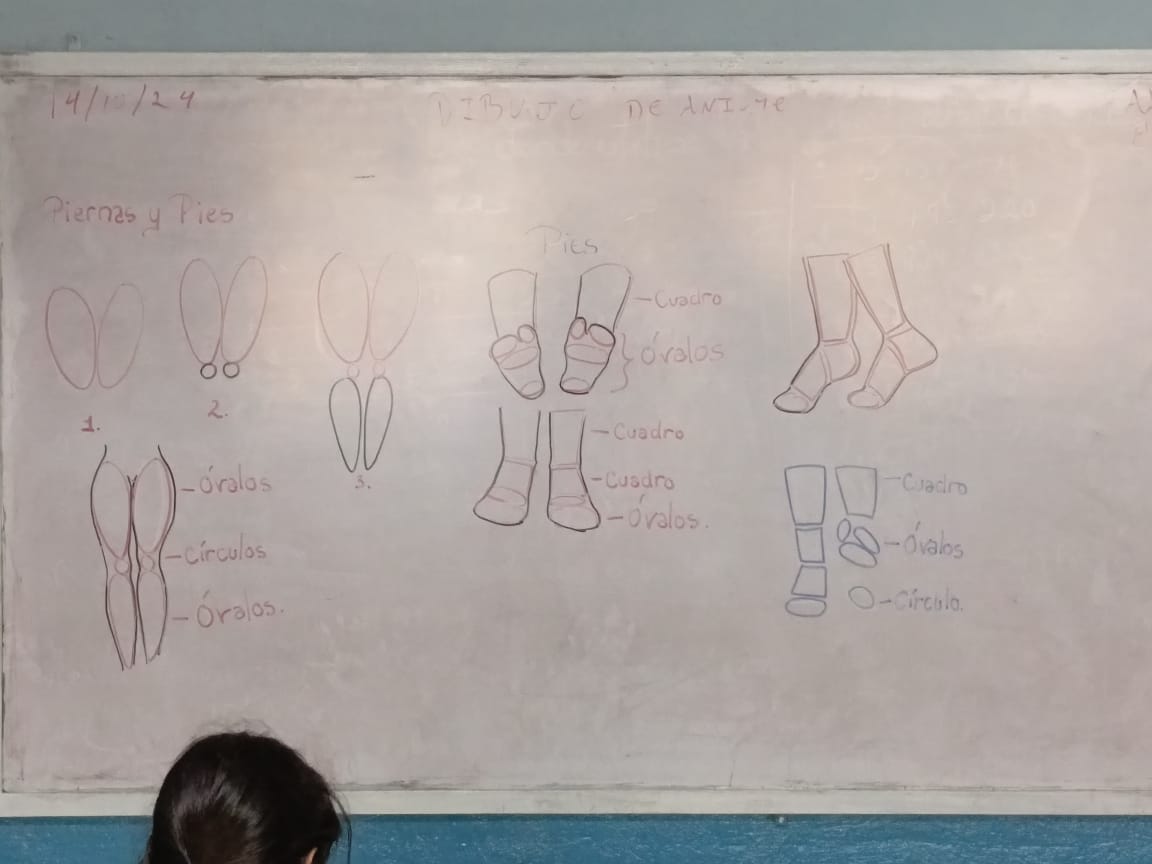 14/10/24
DIBUJO DE ANIME
Piernas y Pies
1.
2.
3.
- Óvalos
- Círculos
- Óvalos.
Pies
- Cuadro
} Óvalos
- Cuadro
- Cuadro
- Óvalos.
- Cuadro
- Óvalos
- Círculo.